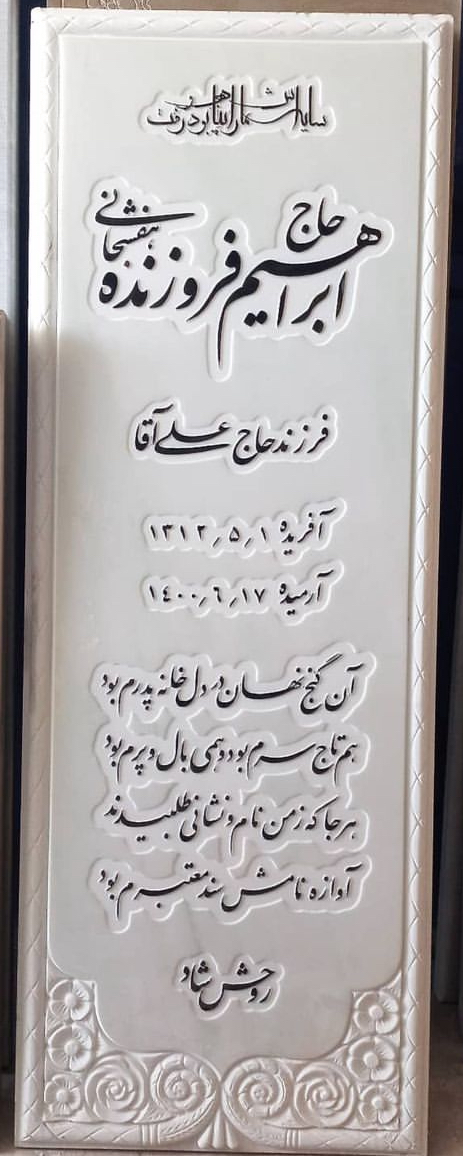 حاج
ابراهیم فروزنده
هفشجانی
فرزند حاج علی آقا
آفریده ۱٫۵٫۱۳۱۲
آرمیده ۱۷٫۶٫۱۴۰۰
آن گنج نهان در دل خانه پدرم بود
هم تاج سرم بود و همی بال و پرم بود
هر جا که ز من نام و نشانی طلبیدند
آوازه نامش سند معتبرم بود
روحش شاد